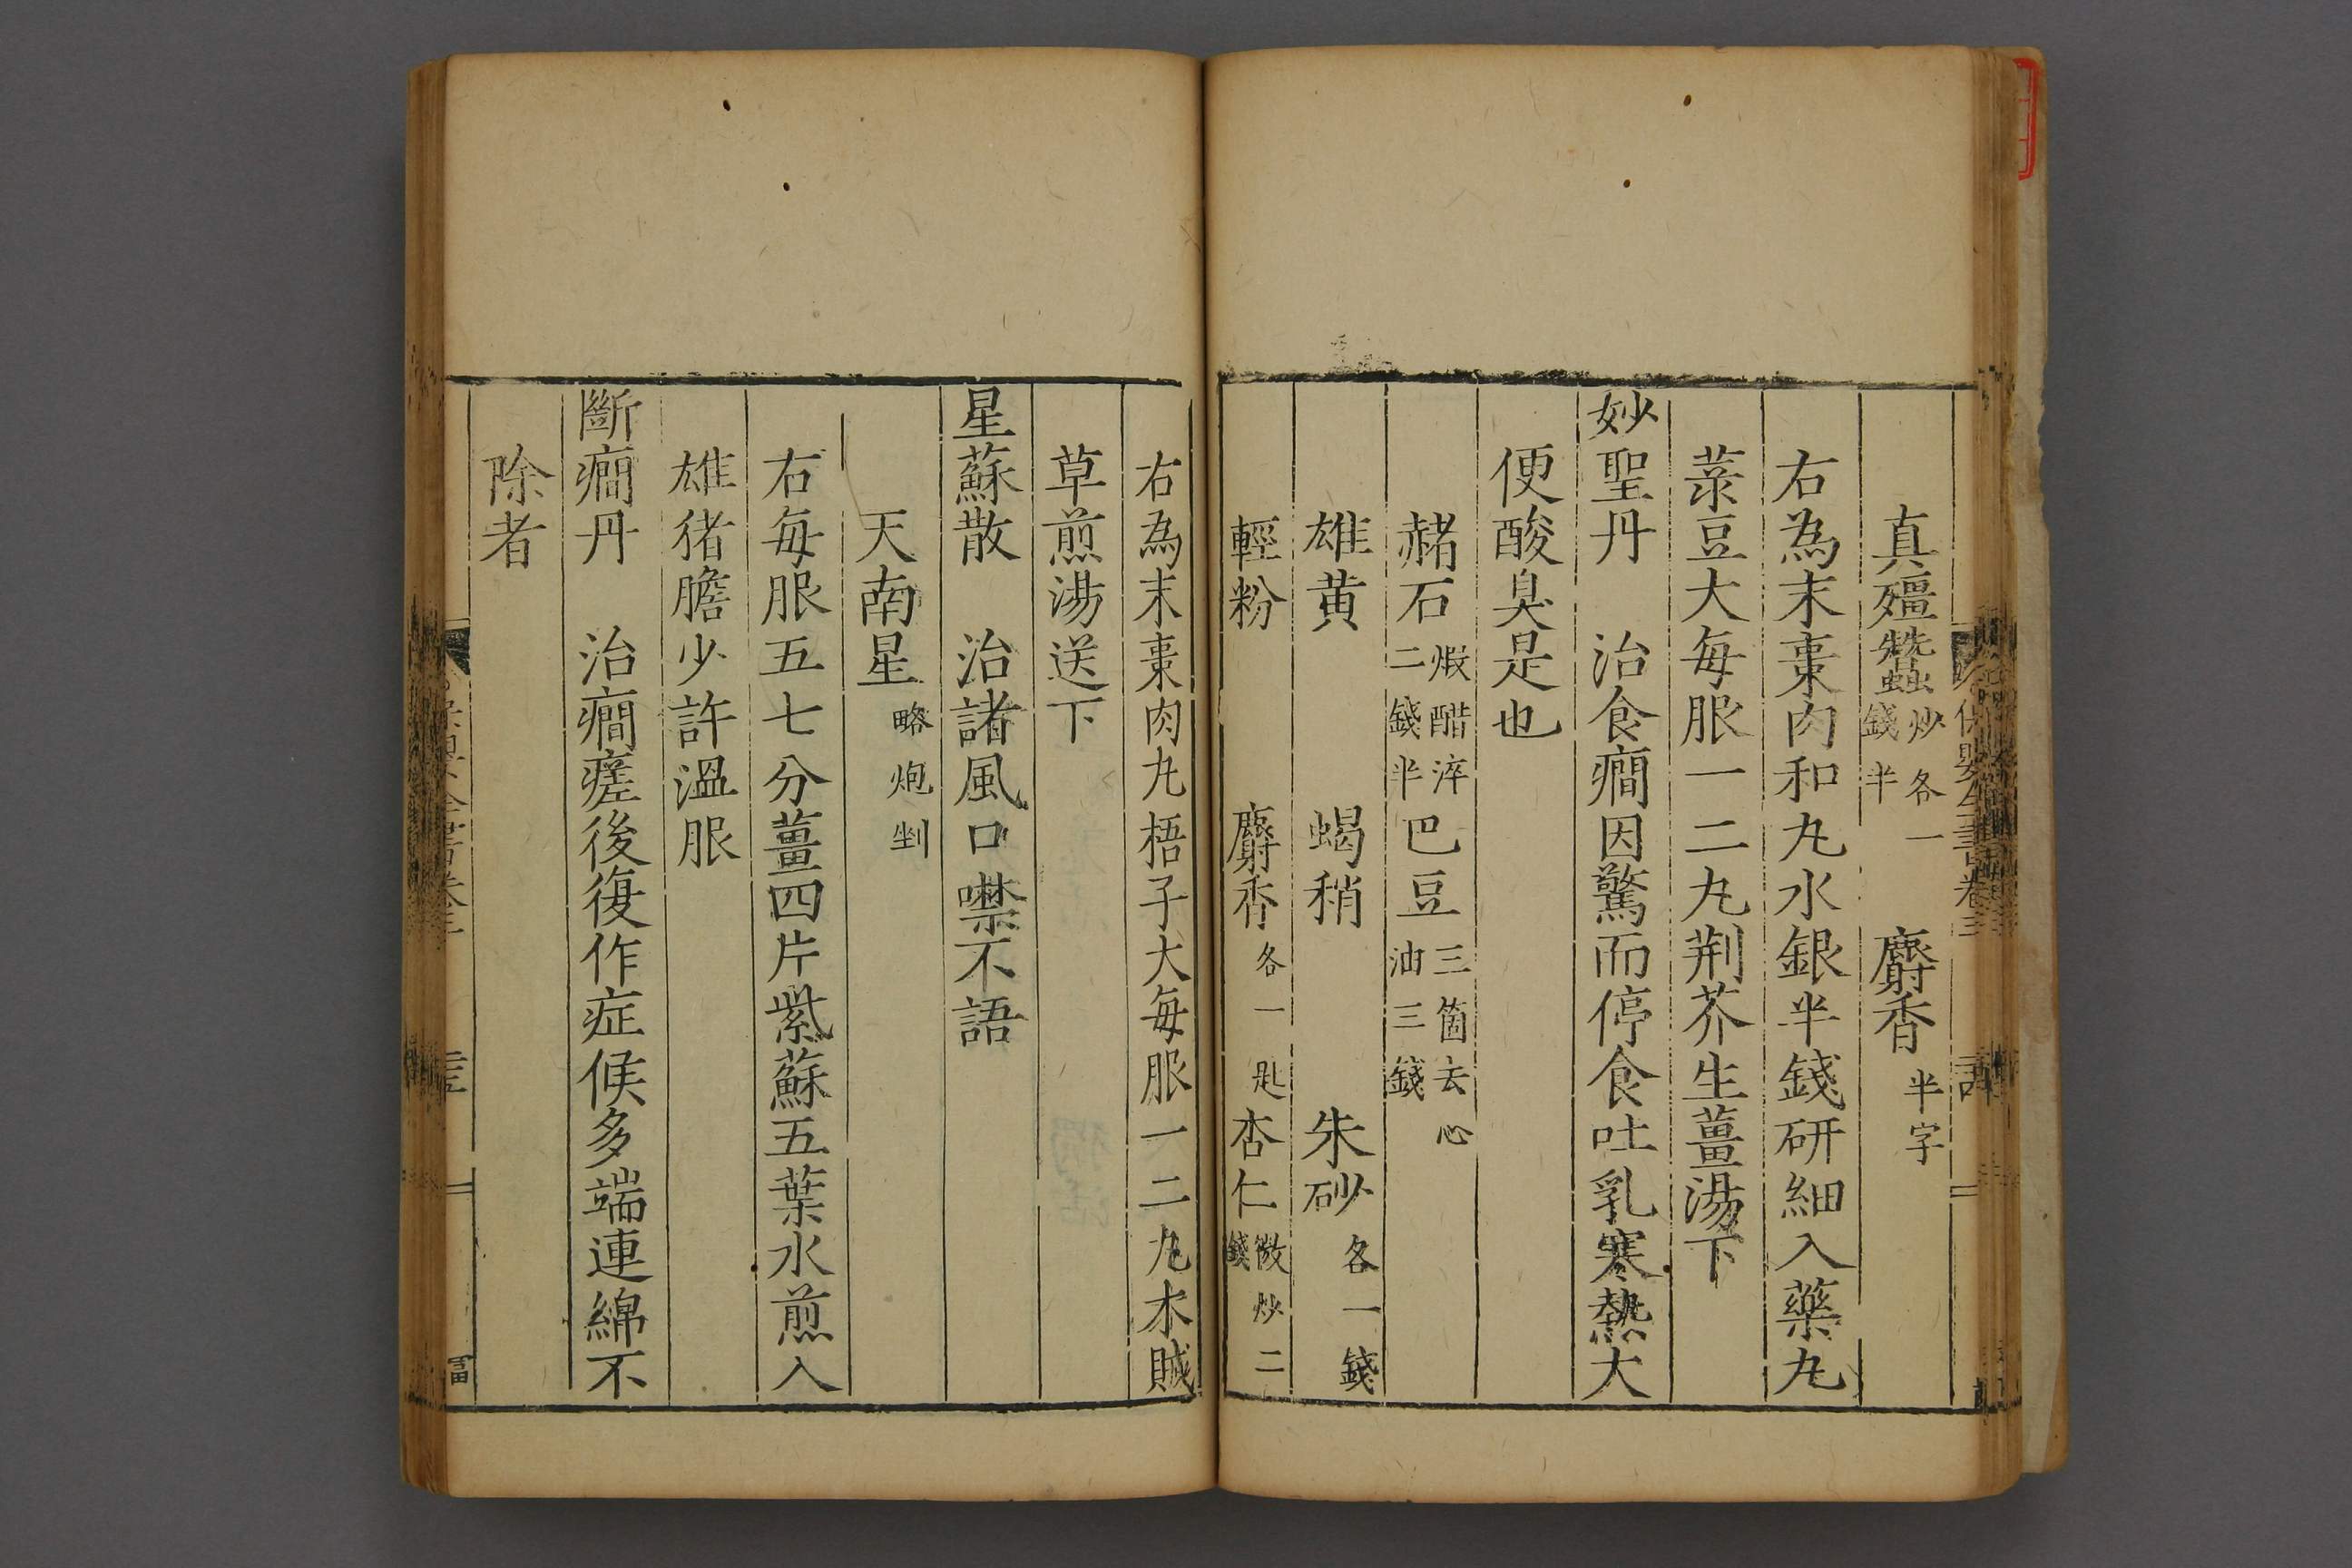 真殭蠶炒各一錢半 麝香半字
右為末棗肉和丸水銀半錢研細入藥丸
菉豆大每服一二丸荆芥生薑湯下
妙聖丹 治食癎因驚而停食吐乳寒熱大
便酸臭是也
赭石煅醋淬二錢半 巴豆三箇去心油三錢
雄黄 蝎稍 朱砂各一錢
輕粉 麝香各一匙 杏仁微炒二錢
右為末棗肉丸梧子大每服一二丸木賊
草煎湯送下
星蘇散 治諸風口噤不語
天南星略炮剉
右每服五七分薑四片紫蘇五葉水煎入
雄猪膽少許温服
斷癎丹 治癎瘥後復作症候多端連綿不
除者